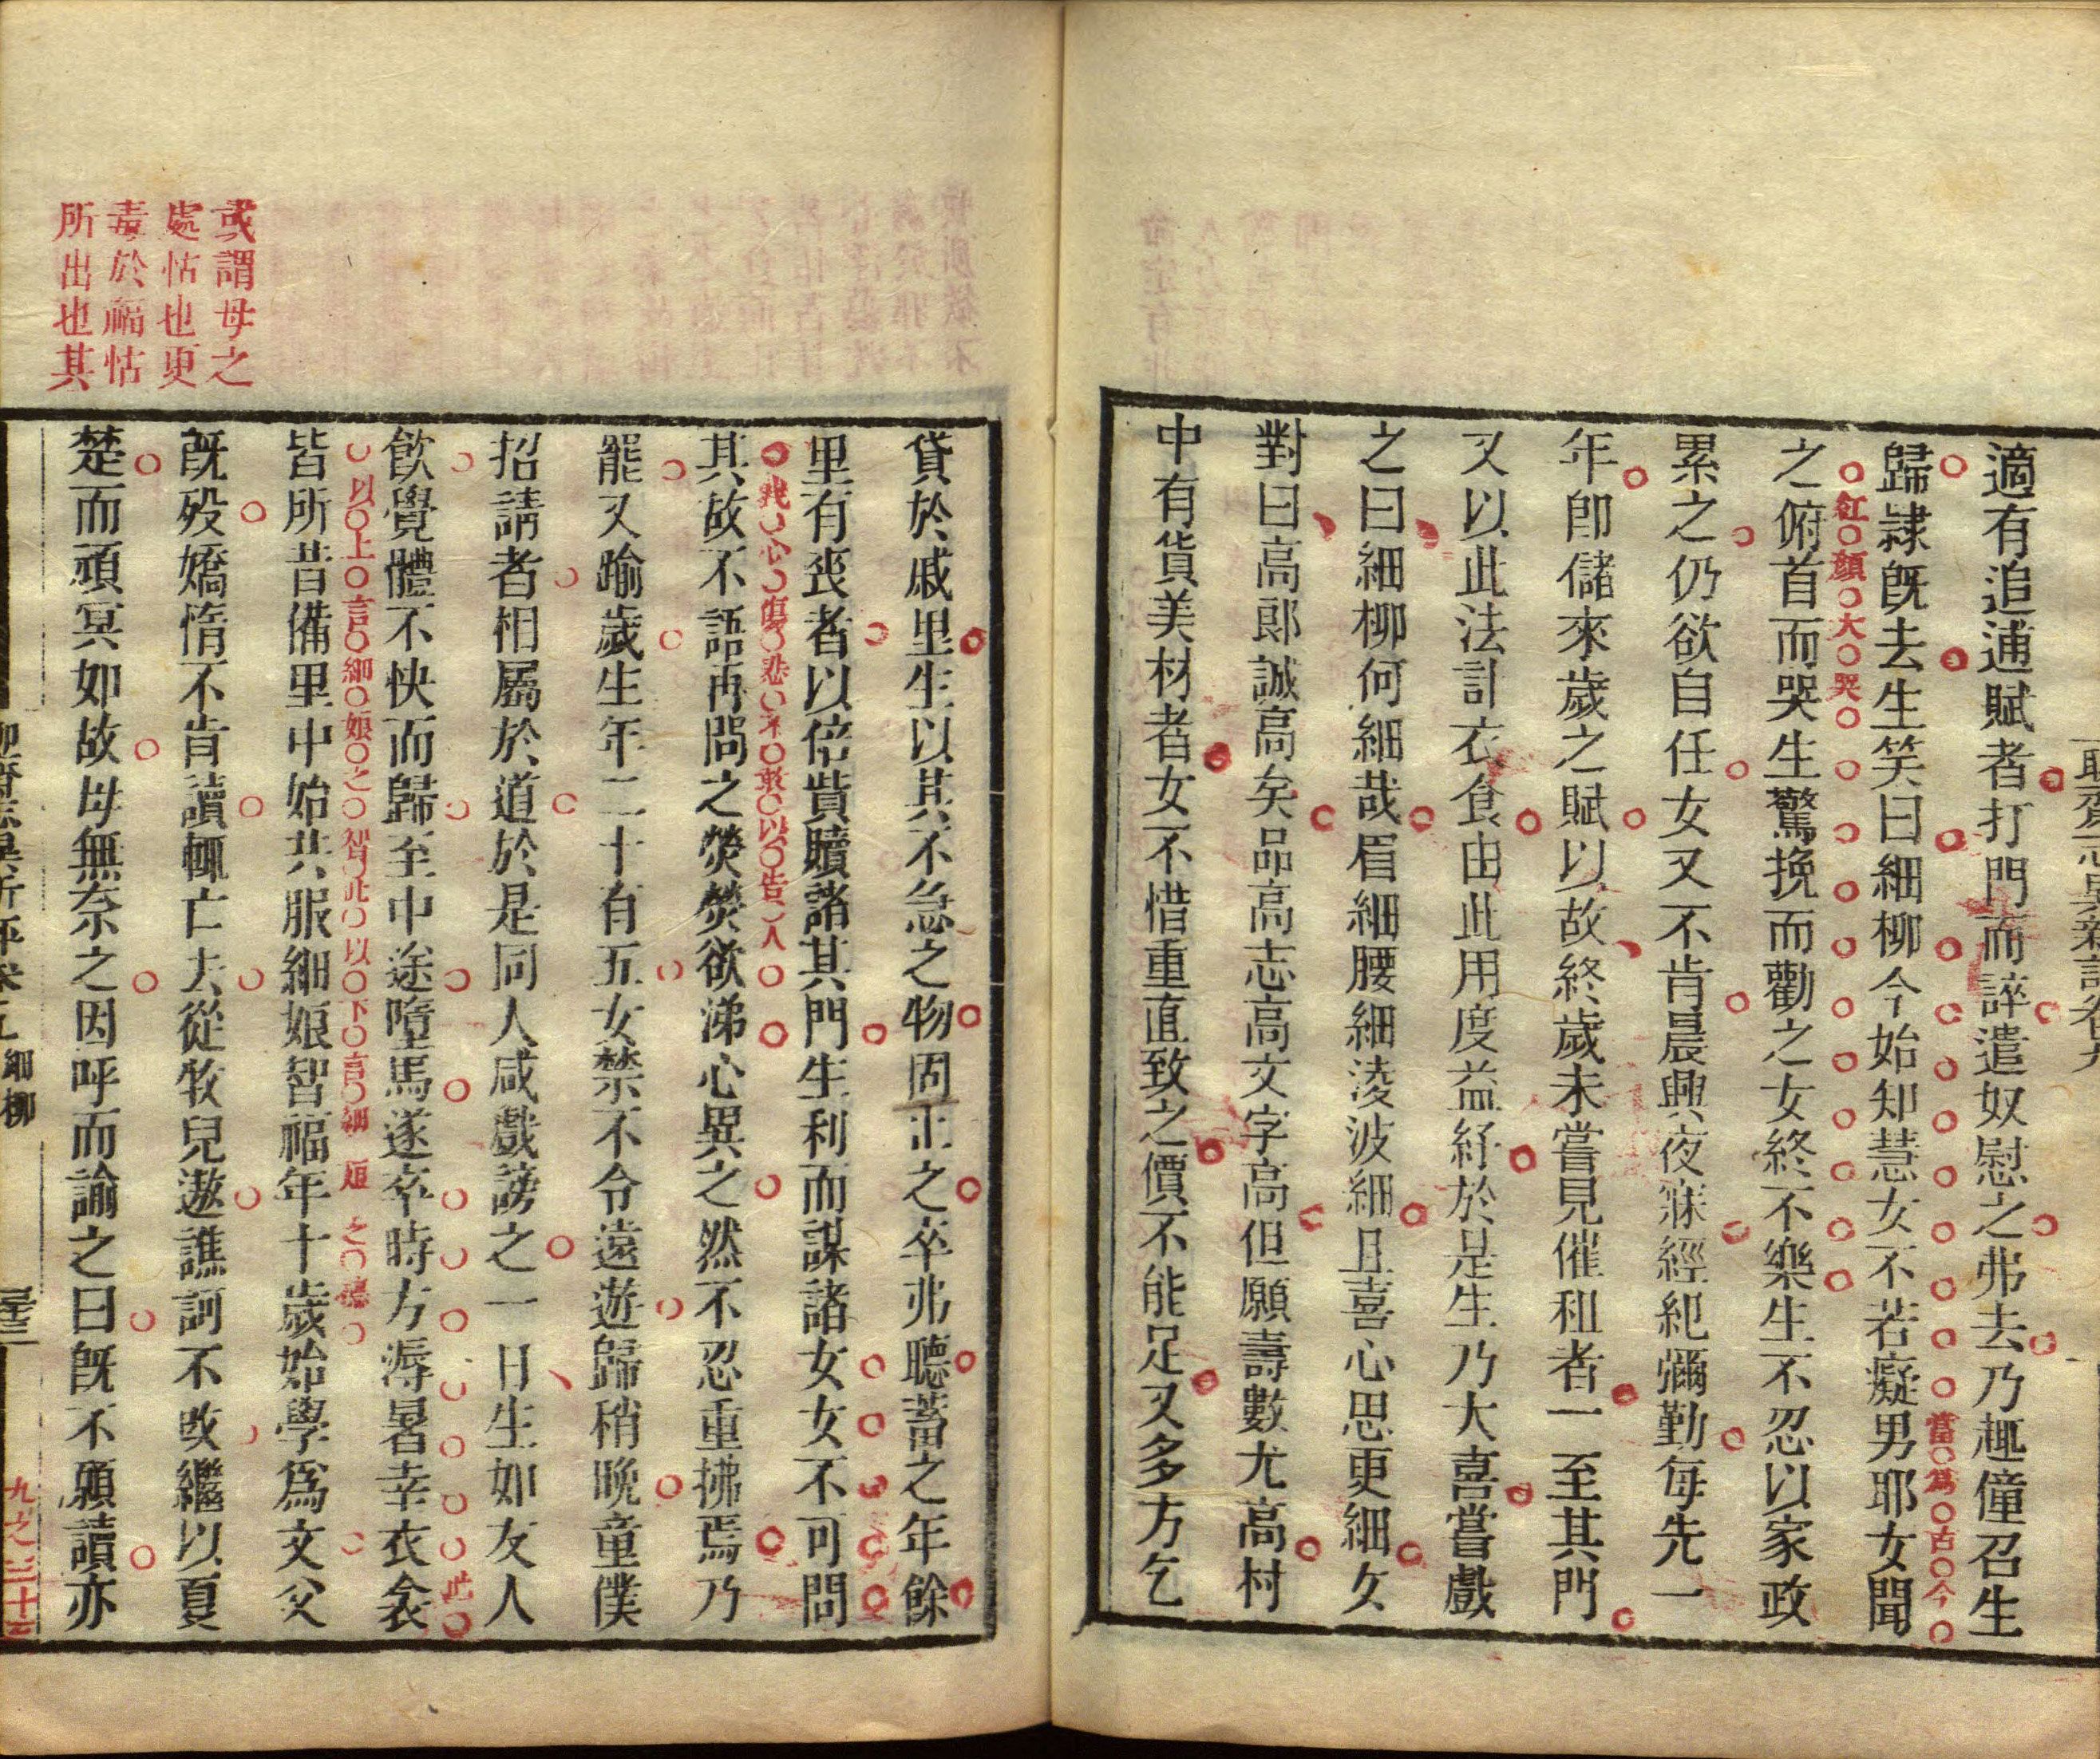 聊齋志異新評卷九
適有追逋賦者打門而誶遣奴慰之弗去乃趣僮召生
歸隷旣去生笑曰細柳今始知慧女不若癡男耶女聞
當爲古今
紅顏大哭
之俯首而哭生驚挽而勸之女終不樂生不忍以家政
累之仍欲自任女又不肯晨興夜寐經紀彌勤每先一
年卽儲來歲之賦以故終歲未嘗見催租者一至其門
又以此法計衣食由此用度益紓於是生乃大喜嘗戲
之曰細柳何細哉眉細腰細淩波細且喜心思更細女
對曰高郎誠高矣品高志高文字高但願壽數尤高村
中有貨美材者女不惜重直致之價不能足又多方乞
貸於戚里生以其不急之物固止之卒弗聽蓄之年餘
里有喪者以倍貲贖諸其門生利而謀諸女女不可問
我心傷悲不敢以告人
其故不語再問之熒熒欲涕心異之然不忍重拂焉乃
罷又踰歲生年二十有五女禁不令遠遊歸稍晚童僕
招請者相屬於道於是同人咸戲謗之一日生如友人
飮覺體不快而歸至中途墮馬遂卒時方溽暑幸衣衾
此
以上言細娘之智此以下言細娘之德
皆所昔備里中始共服細娘智福年十歲始學爲文父
旣歿嬌惰不肯讀輒亡去從牧兒遨譙訶不改繼以夏
楚而頑冥如故母無奈之因呼而諭之曰旣不願讀亦
或謂母之
處怙也更
毒於福怙
所出也其
聊齋志異新評卷九 細柳
九之三十三